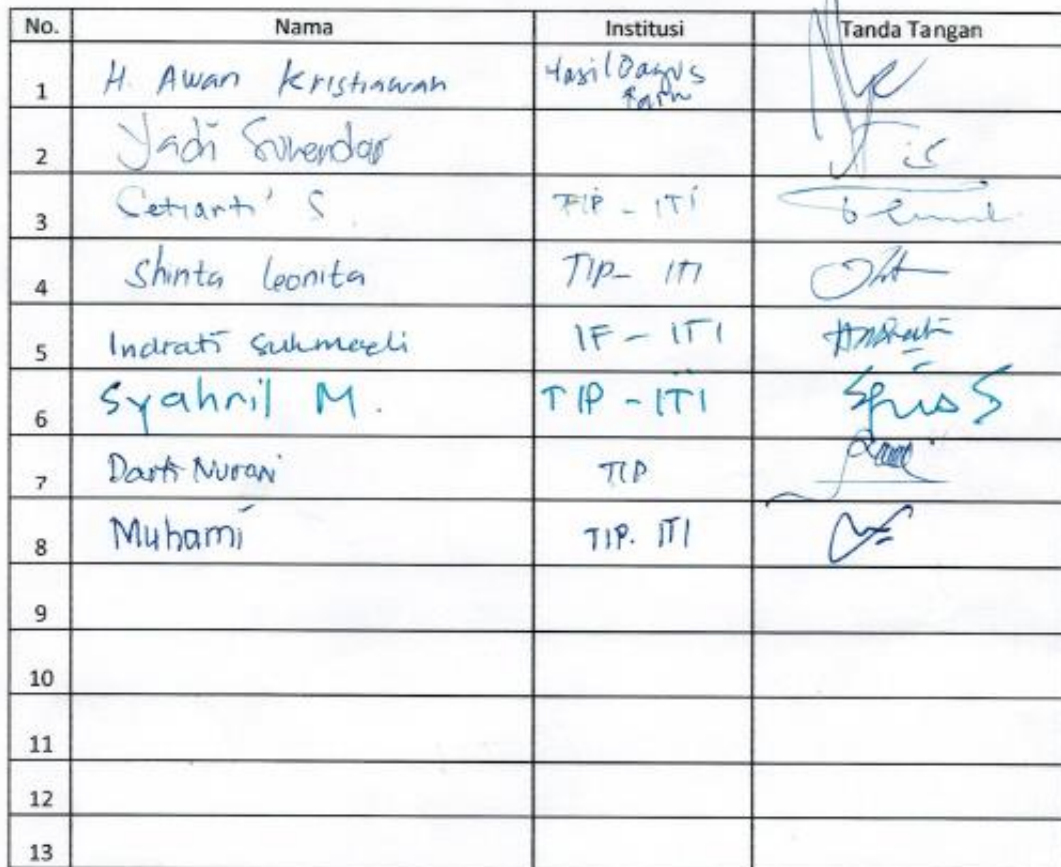 No. Nama Institusi Tanda Tangan
1 H. Awan Kristiawan Hasil Bagus
Farm
2 Yadi Suhendar
3 Setianti S. TIP - ITI
4 Shinta Leonita TIP - ITI
5 Indrati Sukmadi IF - ITI
6 Syahril M. TIP - ITI
7 Darti Nurani TIP
8 Muhami TIP. ITI
9
10
11
12
13